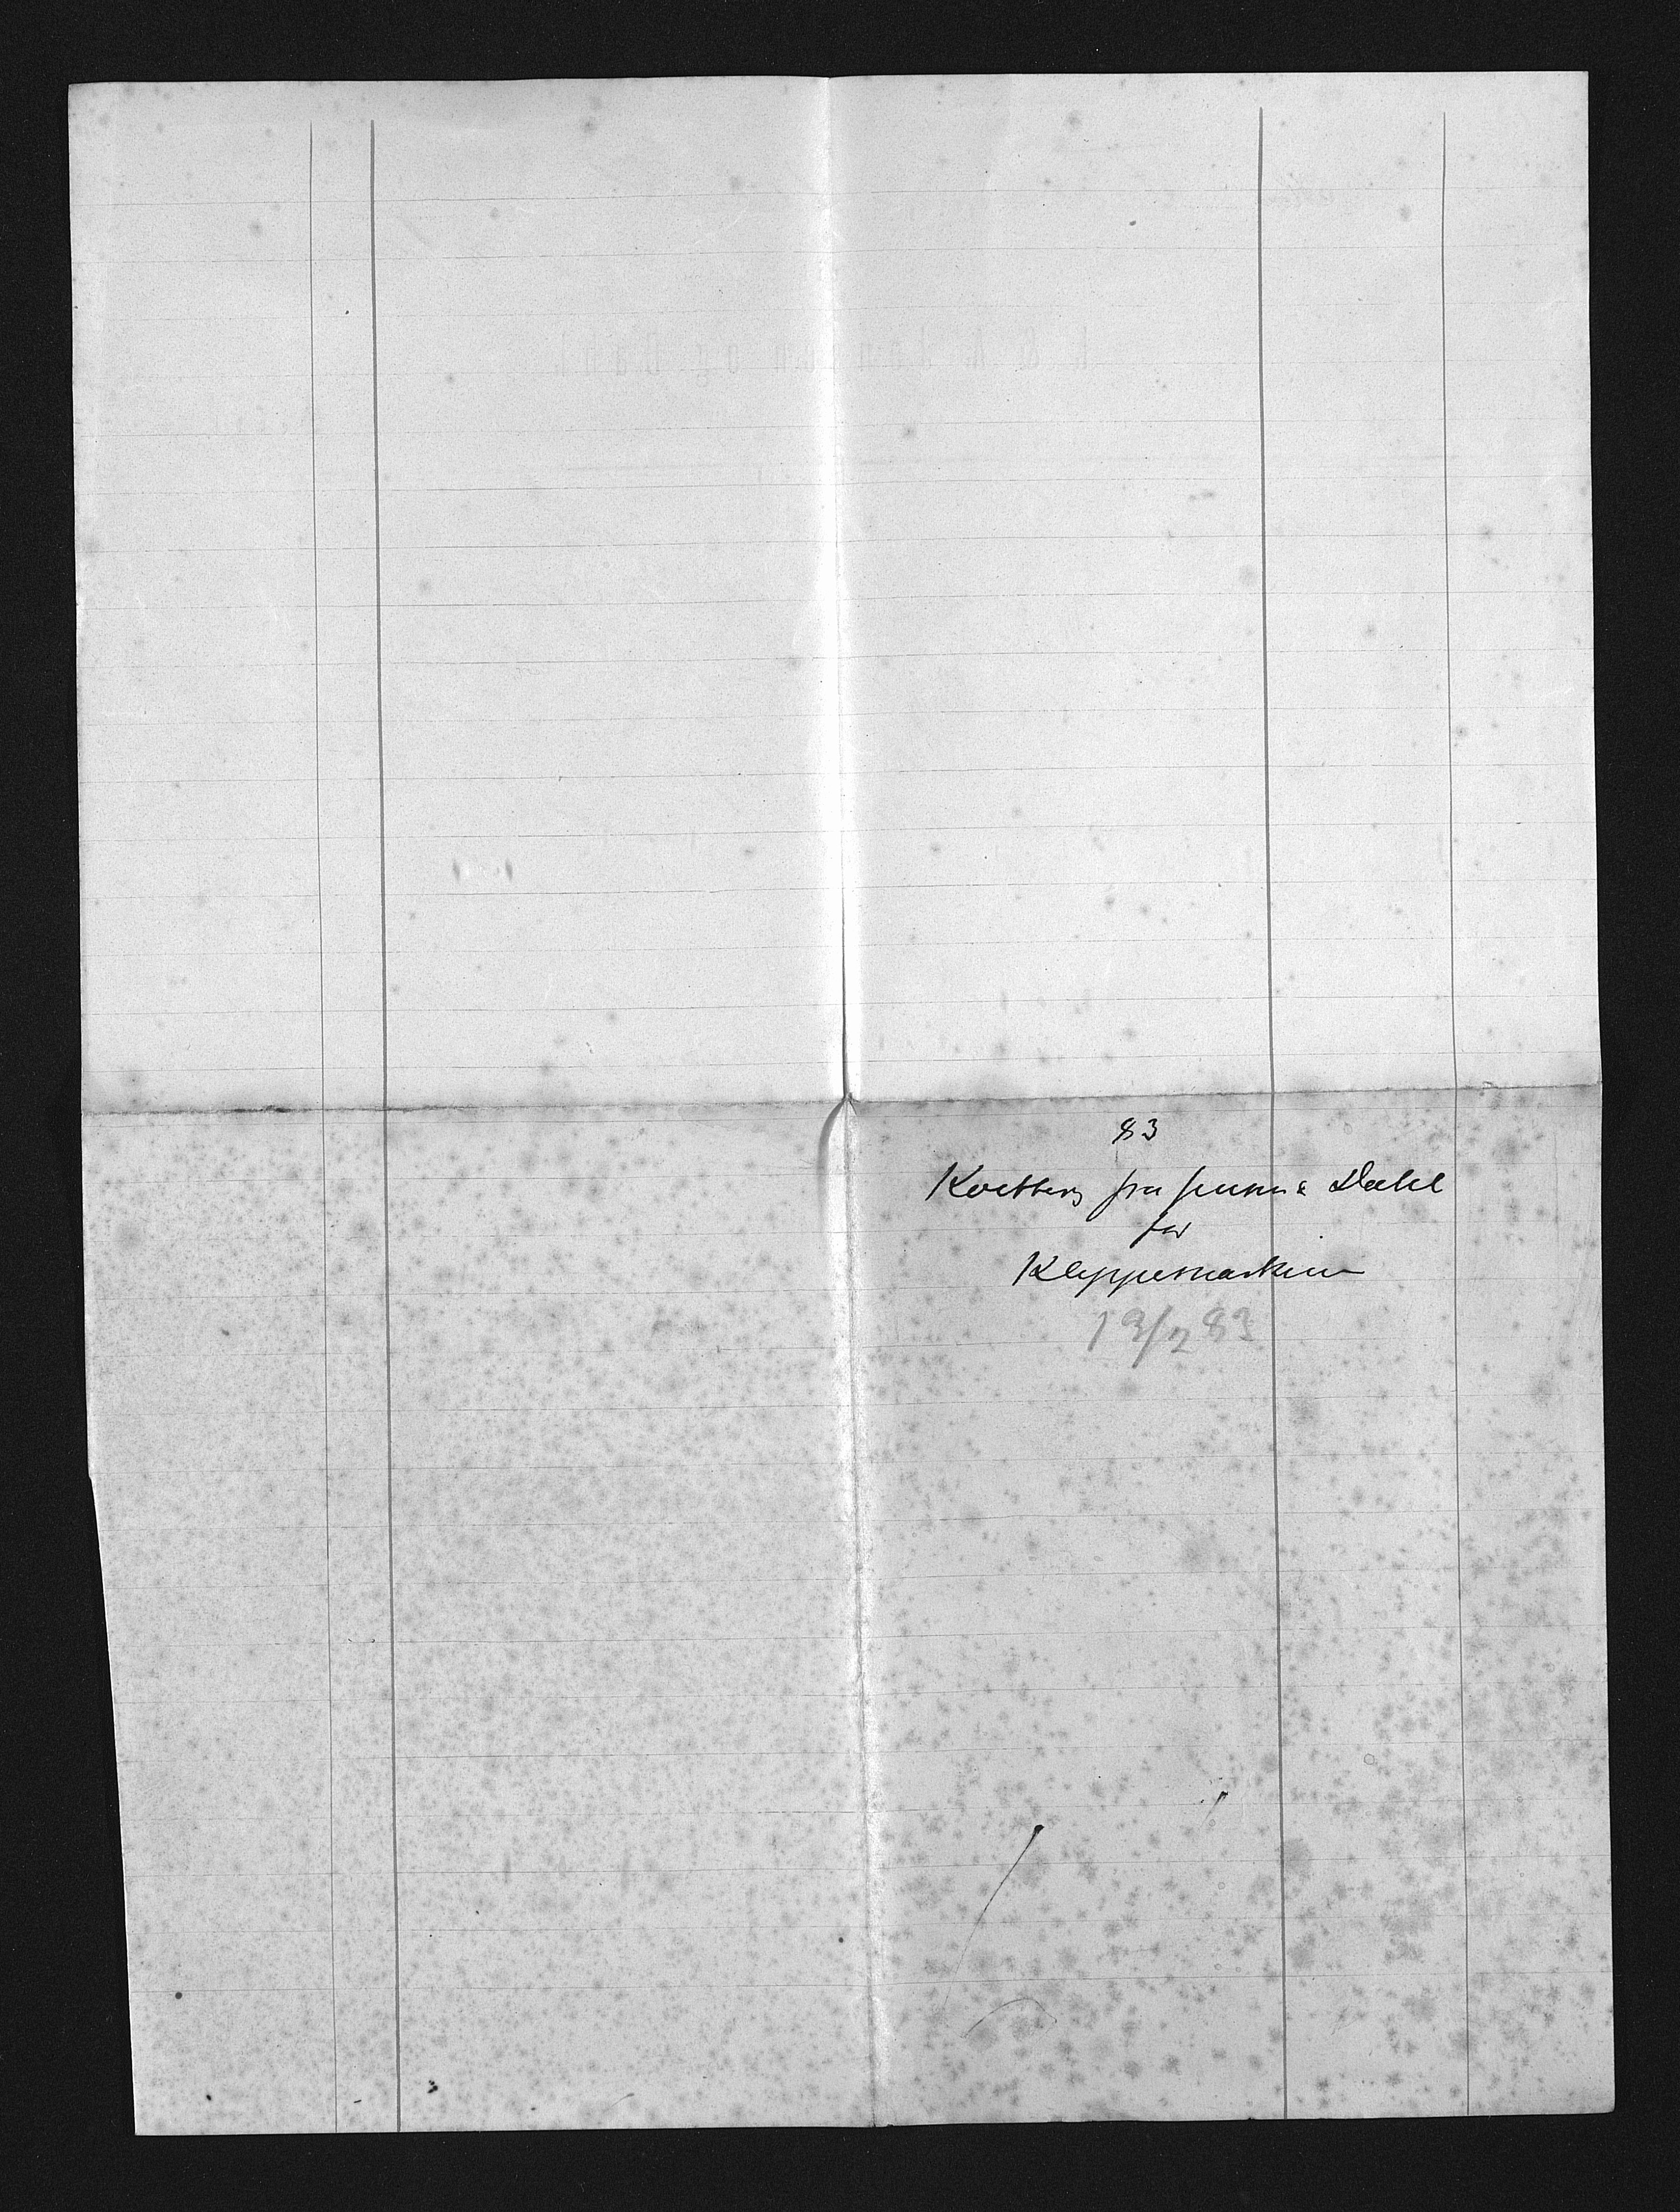 83
Kvittering fra Jensen & Dahl
for
Klippemaskin
19/2 83